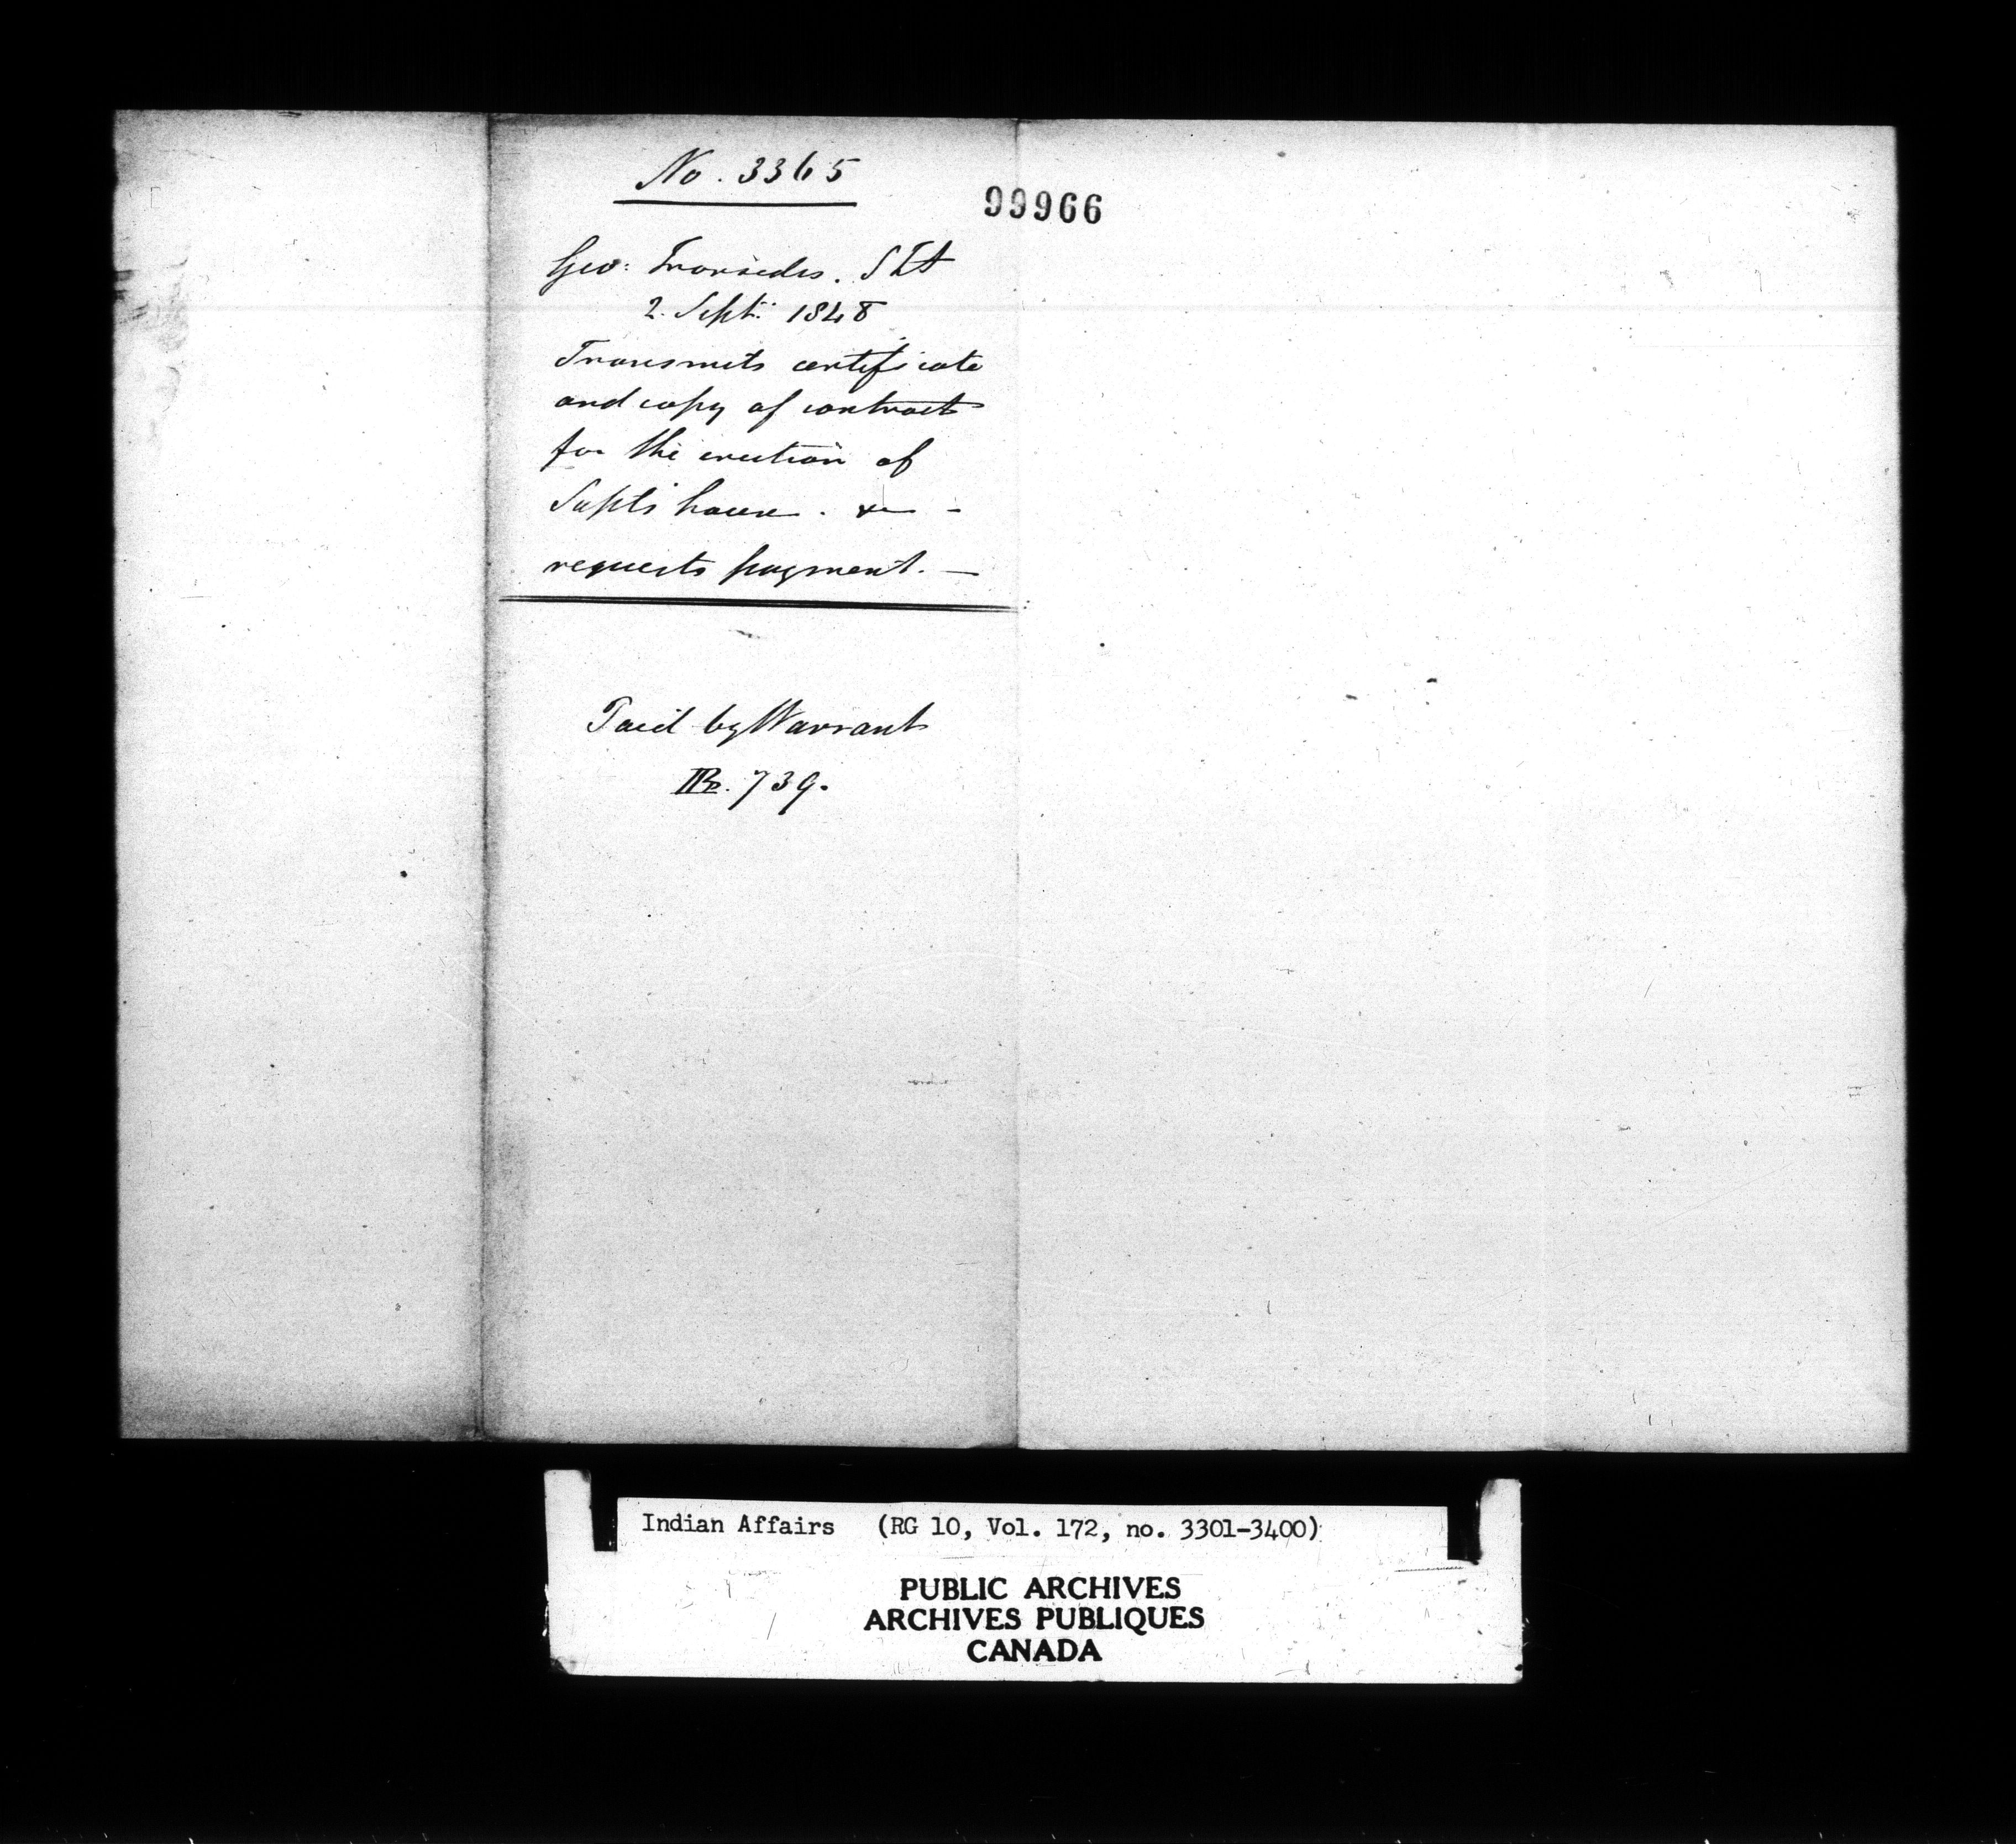 No. 3365
99966
Geo: Ironsides. SIA
2. Sept: 1848
Transmits certificate
and copy of contract
for the erection of
Supts house. &c -
requests payment. —
Paid by Warrant
739.
Indian Affairs (RG 10, Vol. 172, no. 3301-3400)
PUBLIC ARCHIVES
ARCHIVES PUBLIQUES
CANADA